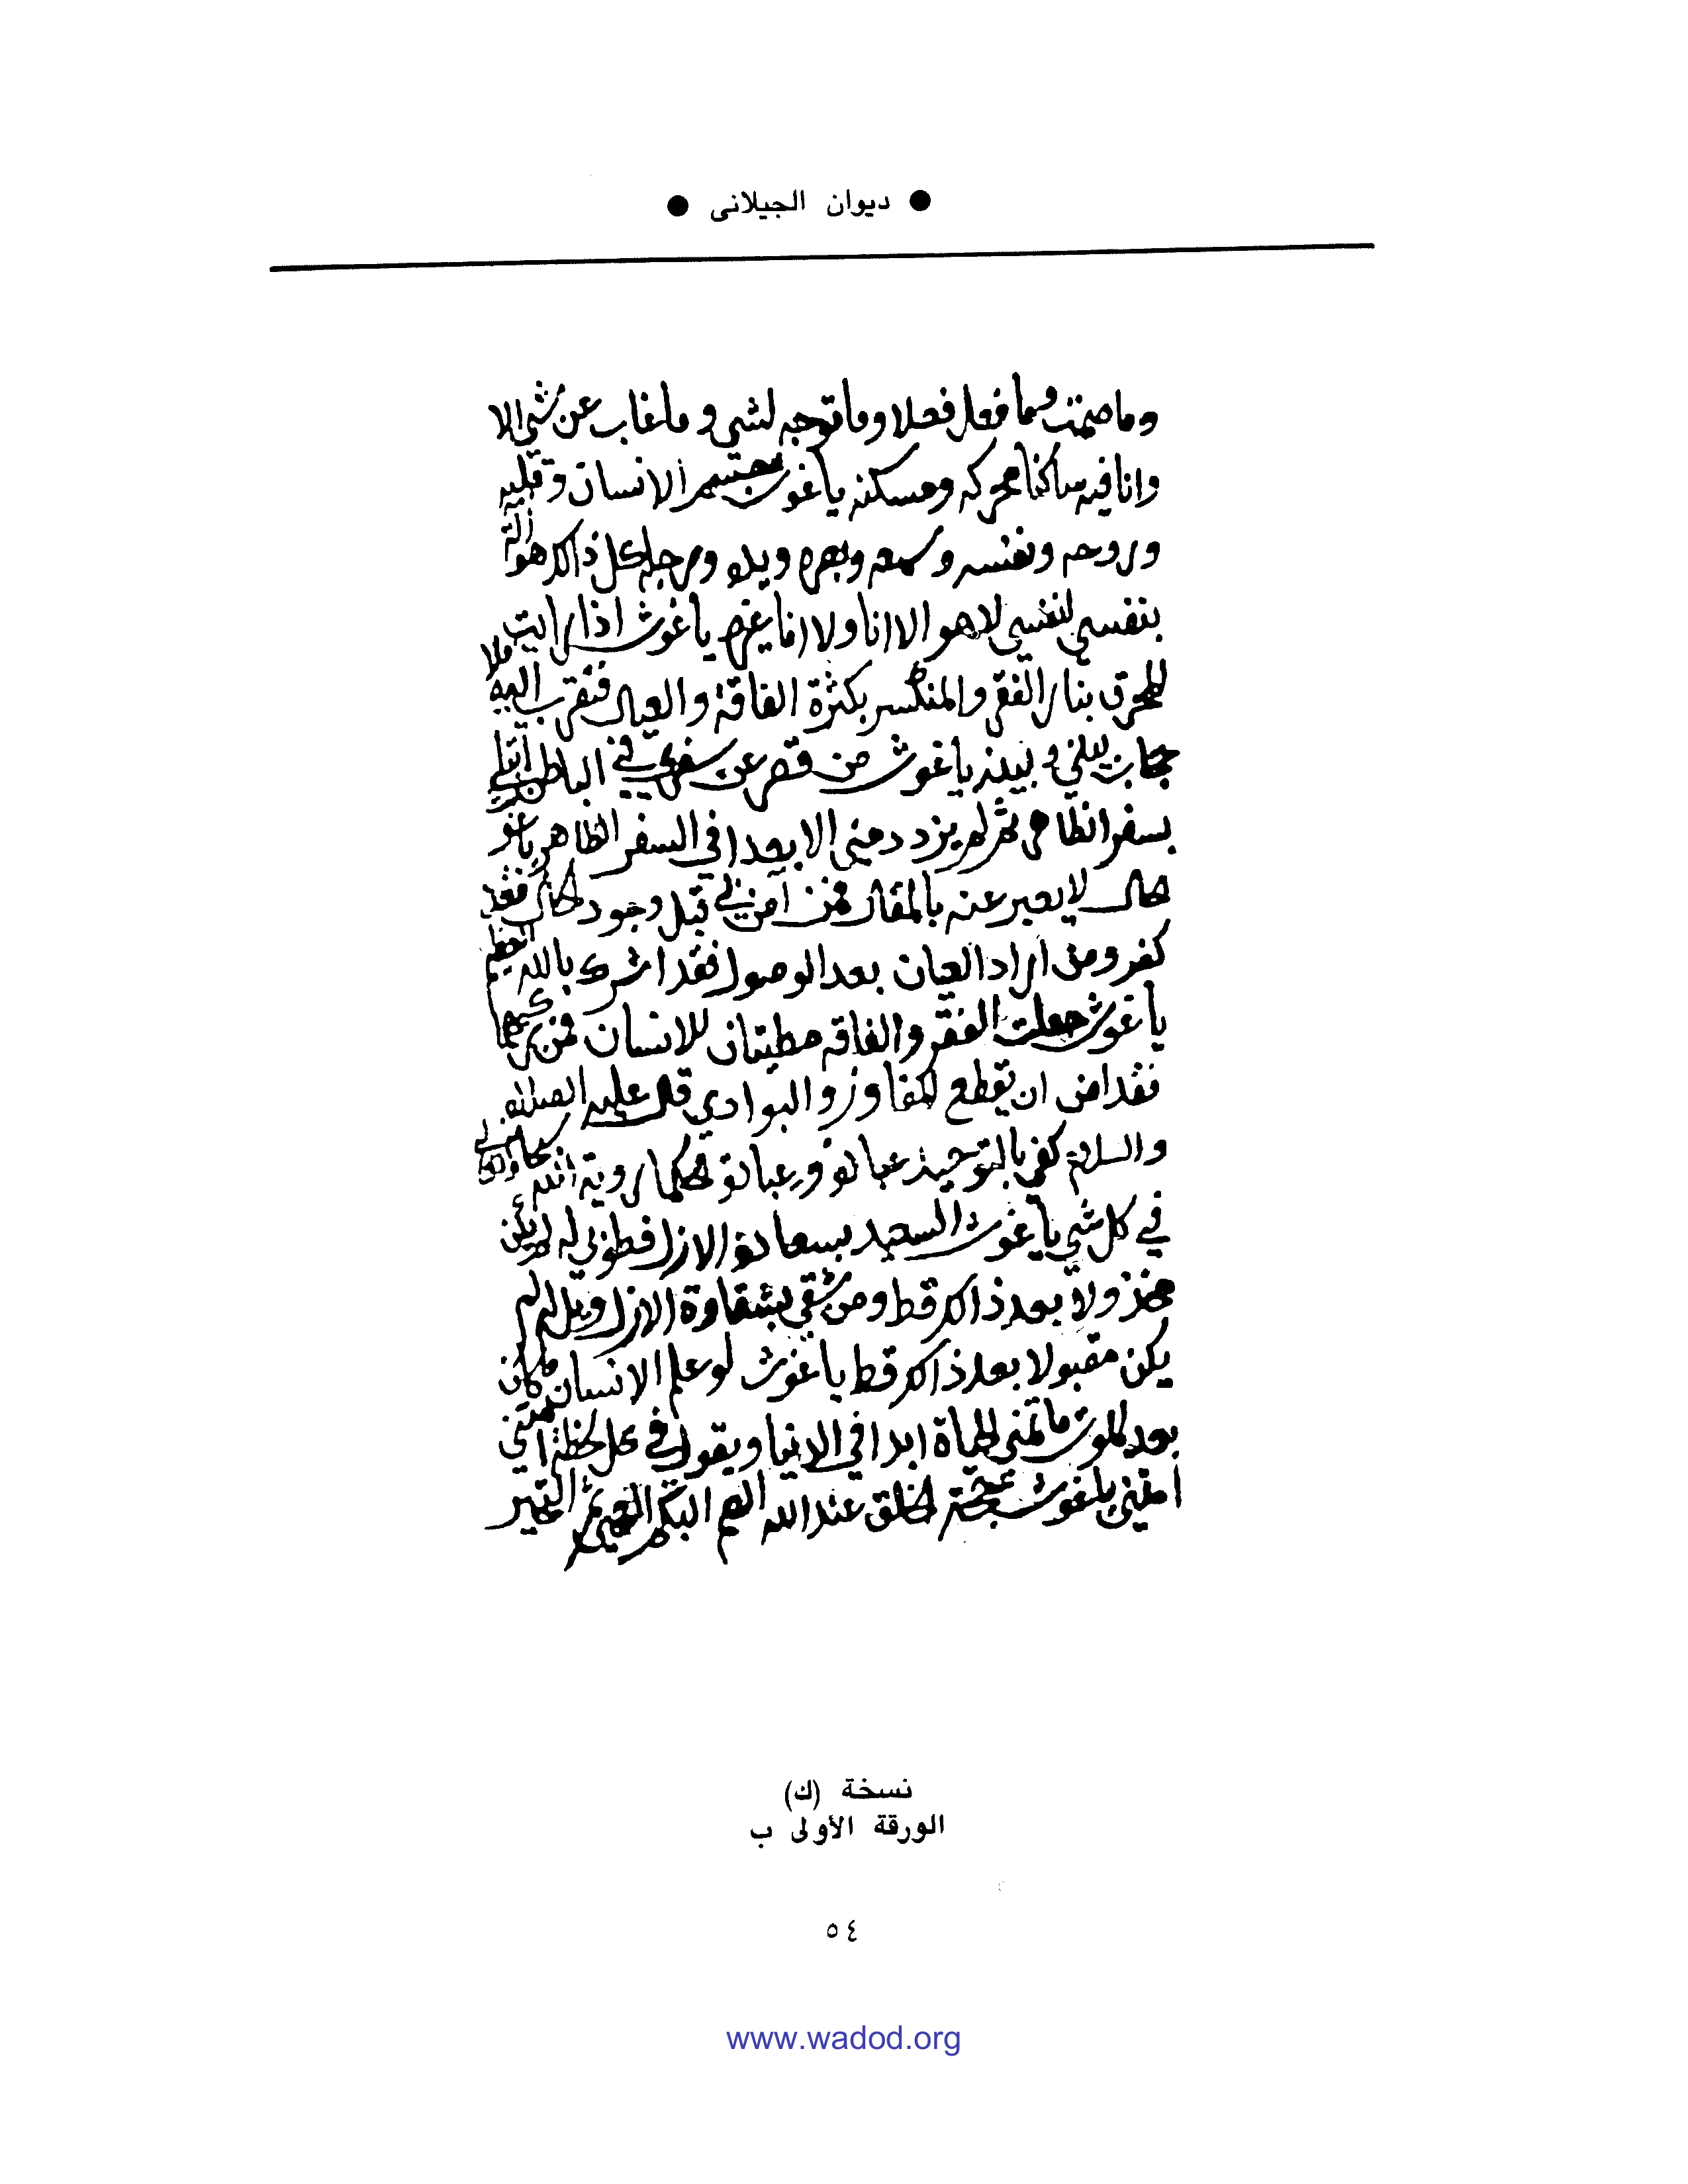 ● ديوان الجيلانى ●
وما صمت وما فعل فعلا وما توجه لشي و ما غاب عن شي الا
وانا فيه ساكنا محركه ومسكنه يا غوث جسم الانسان وقلبه
وروحه ونفسه وسمعه وبصره ويده ورجله كل ذالك هو
بنفسي لنفسي لا هو الا انا ولا انا غيره يا غوث اذا رايت
المحرق بنار الفقر والمنكسر بكثرة الفاقة والعيال فتقرب اليه
حجاب بيني و بينه يا غوث من قصر عن سفري في الباطن ابتلي
بسفر الظاهر ثم لم يزدد مني الا بعدا في السفر الظاهر يا غو
حال لا يعبر عنه بالمقال فمن آمن في قبل وجود الحال فقد
كفر ومن اراد العبان بعد الوصول فقد اشرك بالله العظيم
يا غوث جعلت الفقر والفاقه مطيتان للانسان فمن
فقد ان يقطع المفاوز و البوادي قال عليه الصلاة
والسلام كفى بالتوحيد عبادة روية الله
في كل شي يا غوث السعيد بسعادة الازل فطوبى له لم يكن
ولا بعد ذالك قط ومن شقي بشقاوة الازل ويل له لم
يكن مقبولا بعد ذالك قط يا غوث لو علم الانسان ما كان
بعد الموت ما تمنى الحياة ابدا في الدنيا ويقول في كل لحظة امتني
امتني يا غوث حجة الخلق عند الله الصم البكم العمي ثم التحير
نسخة (ك)
الورقة الأولى ب
٥٤
www.wadod.org